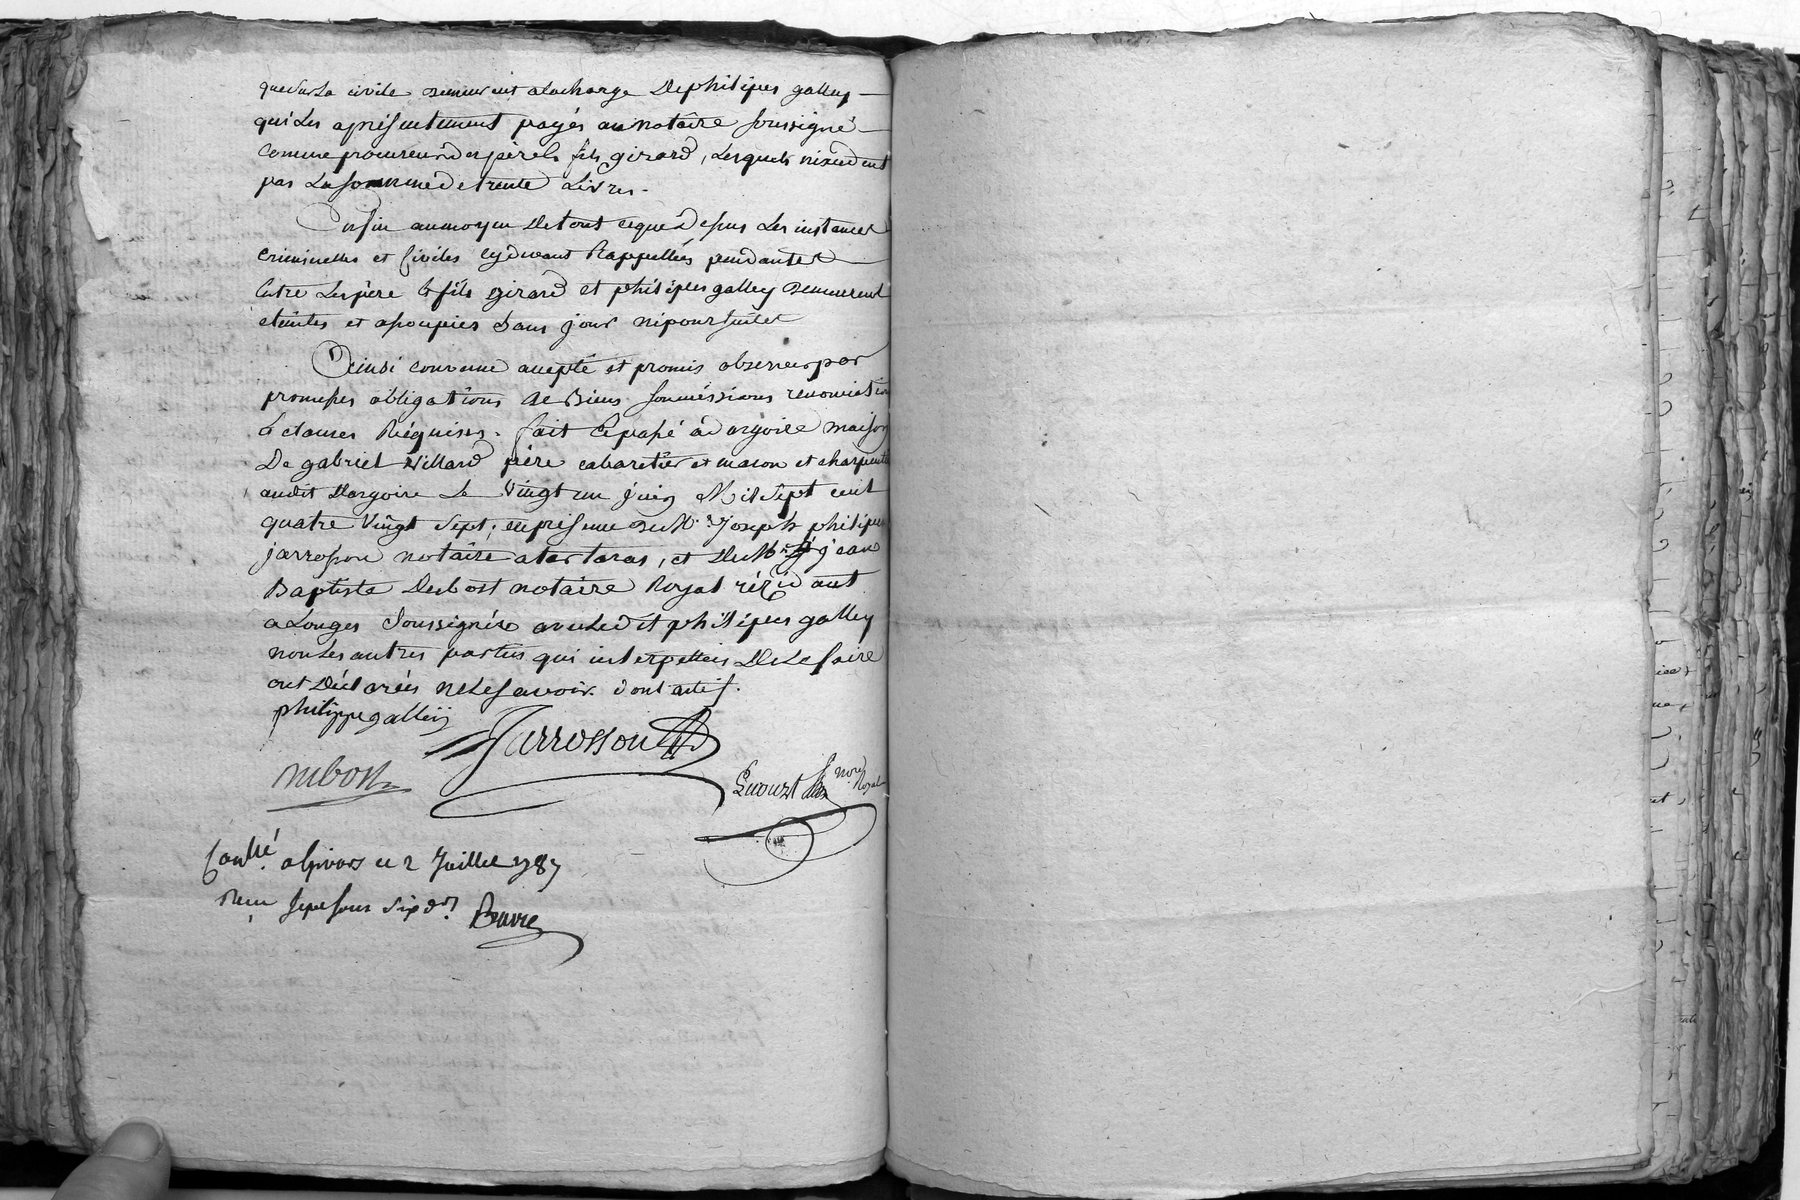 que sur la civile demeurent a la charge De philipes galley
qui les a presentement payés au notaire soussigné
comme procureur des père & fils girard, lesquels n'excedent
pas la somme de trente Livres.
Enfin au moyen De tout ce que dessus Les instances
criminelles et Civiles cy devant Rappellées pendantes
entre Les père & fils girard et philipes galley demeurent
eteintes et assoupies sans jour ni poursuites
Ainsi convenu accepté et promis observer par
promesses obligations de Biens soumissions renonciation
& clauses Réquises. fait & passé à dargoire maison
De gabriel villard père cabaretier et mason et charpentier
audit Dargoire Le vingt un juin Mil Sept cent
quatre vingt sept, en presence de Mr. Joseph philipes
jarrosson notaire a tartaras, et De Mr. jean
Baptiste Dubost notaire Royal rézidant
a Longes Soussignés avec Ledit philipes galley
non Les autres parties qui interpellées De Le faire
ont Déclarées ne Le savoir. dont acte.
philippe galley
Jarrosson
Dubost
nore Royal
Conllé. a Givors ce 2 Juillet 1787
Recu sept sous six drs.